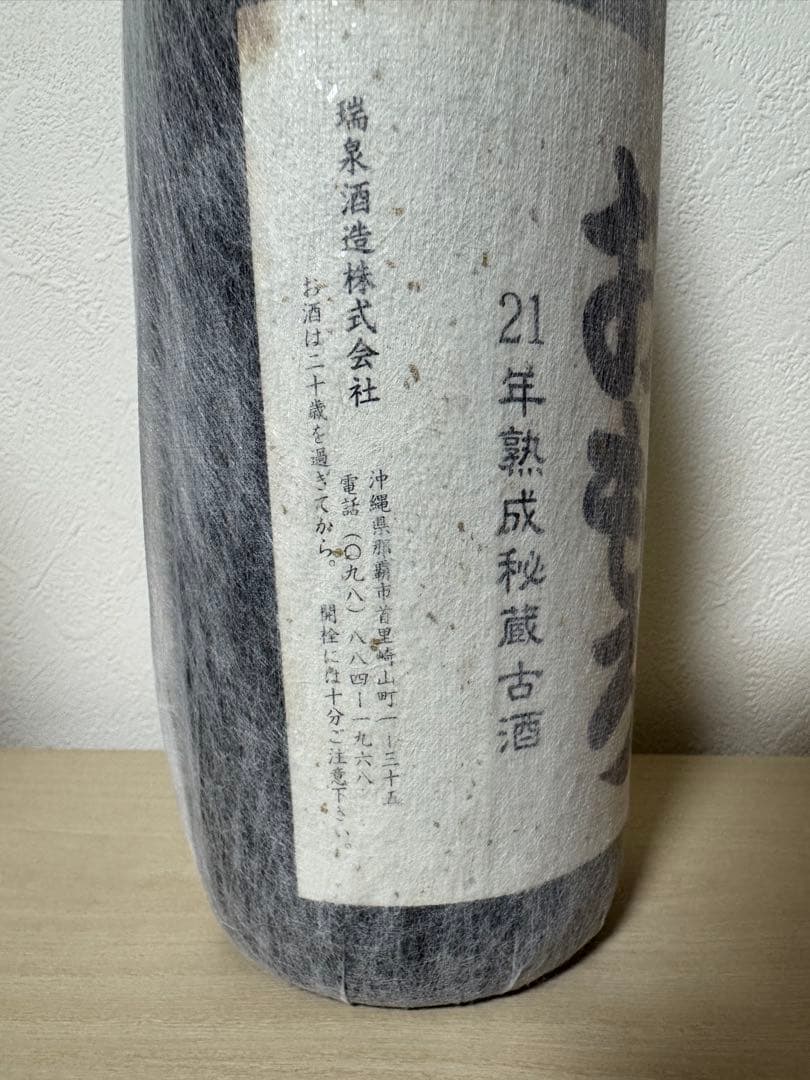 おもろ
21年熟成秘蔵古酒
瑞泉酒造株式会社
沖縄県那覇市首里崎山町一ー三十五
電話(〇九八)八八四ー一九六八
お酒は二十歳を過ぎてから。 開栓には十分ご注意下さい。